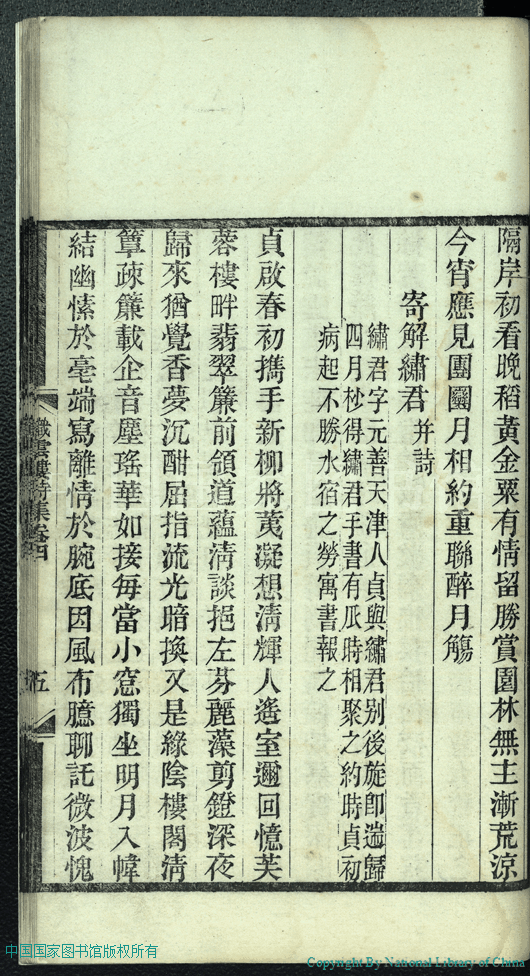 隔岸初看晚稻黃金粟有情留勝賞園林無主漸荒涼
今宵應見團圞月相約重聯醉月觴
寄解繡君并詩
繡君字元善天津人貞與繡君别後旋即遄歸
四月杪得繡君手書有瓜時相聚之約時貞初
病起不勝水宿之勞寓書報之
貞啟春初擕手新柳將荑凝想淸輝人遙室邇回憶芙
蓉樓畔翡翠簾前領道蘊淸談挹左芬麗藻剪鐙深夜
歸來猶覺香夢沉酣屈指流光暗換又是綠陰樓閣淸
簟疎簾載企音塵瑤華如接每當小窓獨坐明月入幃
結幽愫於毫端寫離情於腕底因風布臆聊託微波愧
織雲樓詩集卷四
五
中国国家图书馆版权所有
Copyright By National Library of China